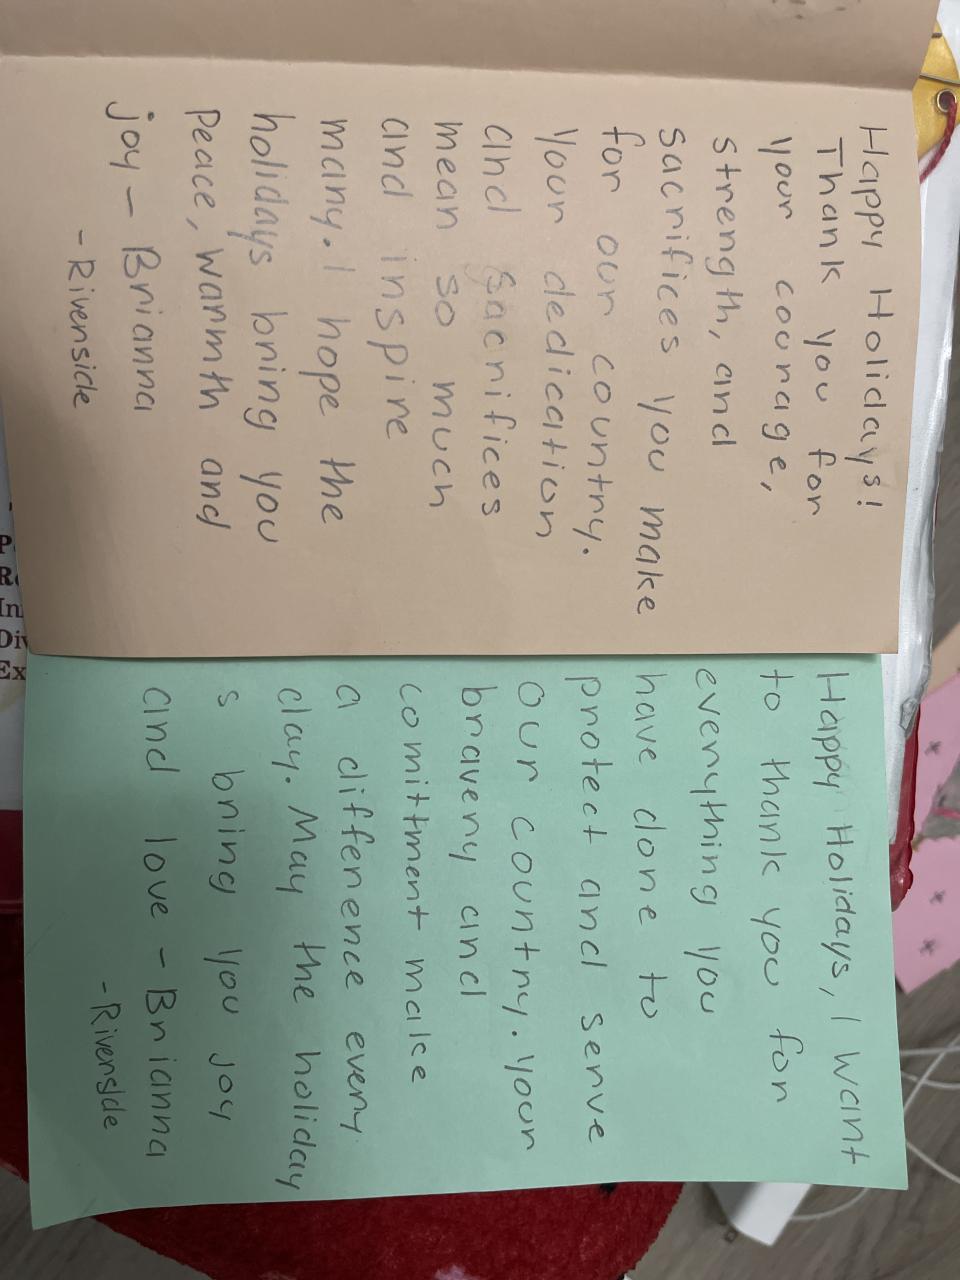 Happy Holidays!
Thank you for
your courage,
strength, and
sacrifices you make
for our country.
Your dedication
and sacrifices
mean so much
and inspire
many. I hope the
holidays bring you
Peace, warmth and
joy - Brianna
- Riverside
Happy Holidays, I want
to thank you for
everything you
have done to
protect and serve
our country. Your
bravery and
comittment make
a difference every
day. May the holiday
s bring you joy
and love - Brianna
- Riverside